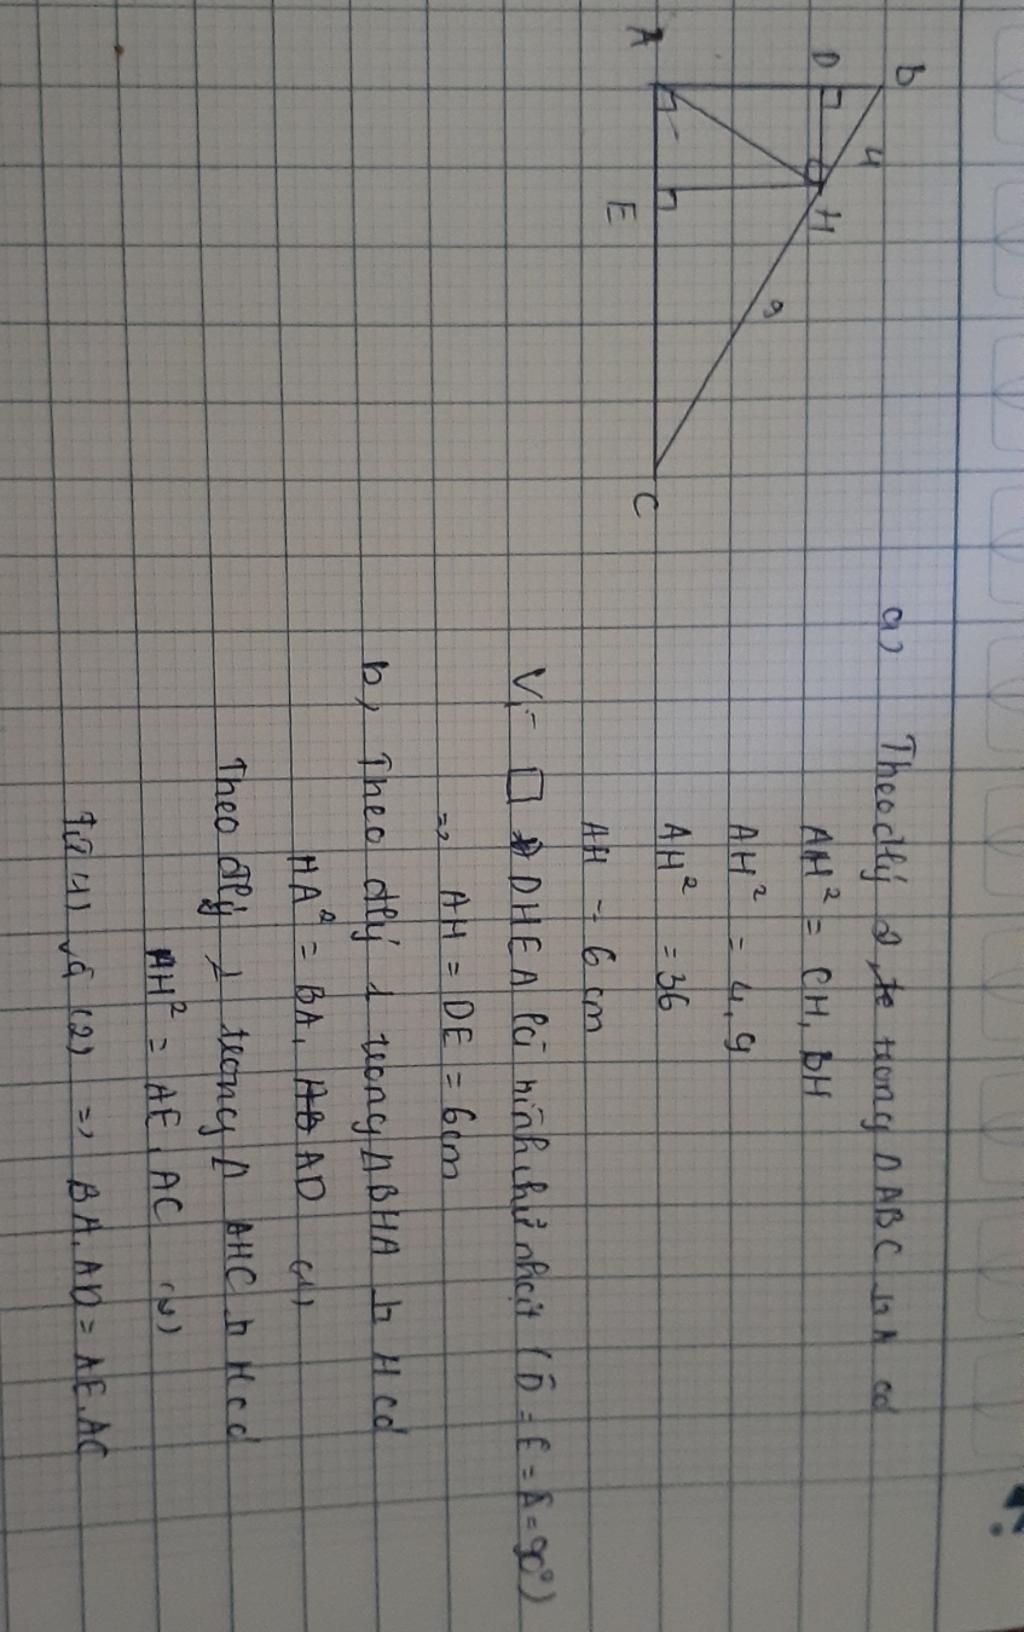 A
D
B
4
H
E
9
C
a) Theo đlý 2, te trong △ABC ⊾A có
AH² = CH. BH
AH² = 4.9
AH² = 36
AH = 6 cm
Vì □ DHEA là hình chữ nhật (D̂ = Ê = Â = 90°)
=> AH = DE = 6cm
b, Theo đlý 1 trong △BHA ⊾ H có
HA² = BA. AB AD (1)
Theo đlý 1 trong △ AHC ⊾ H có
AH² = AE. AC (2)
Từ (1) và (2) => BA. AD = AE. AC